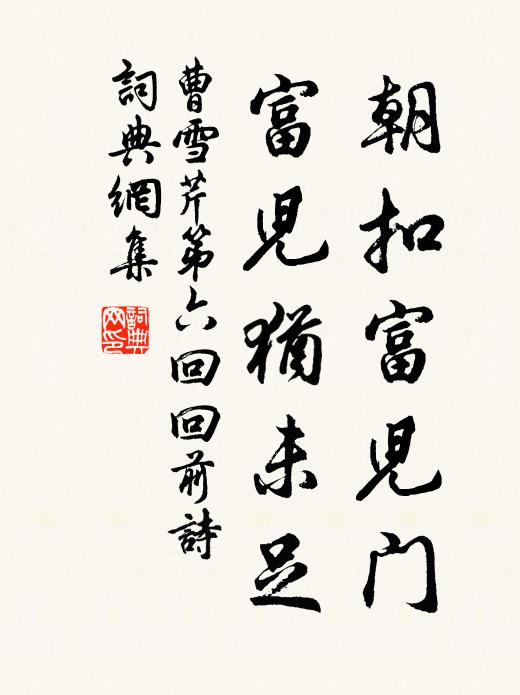 朝扣富兒門
富兒猶未足
曹雪芹第六回回前詩
詞典網集
詞典网印